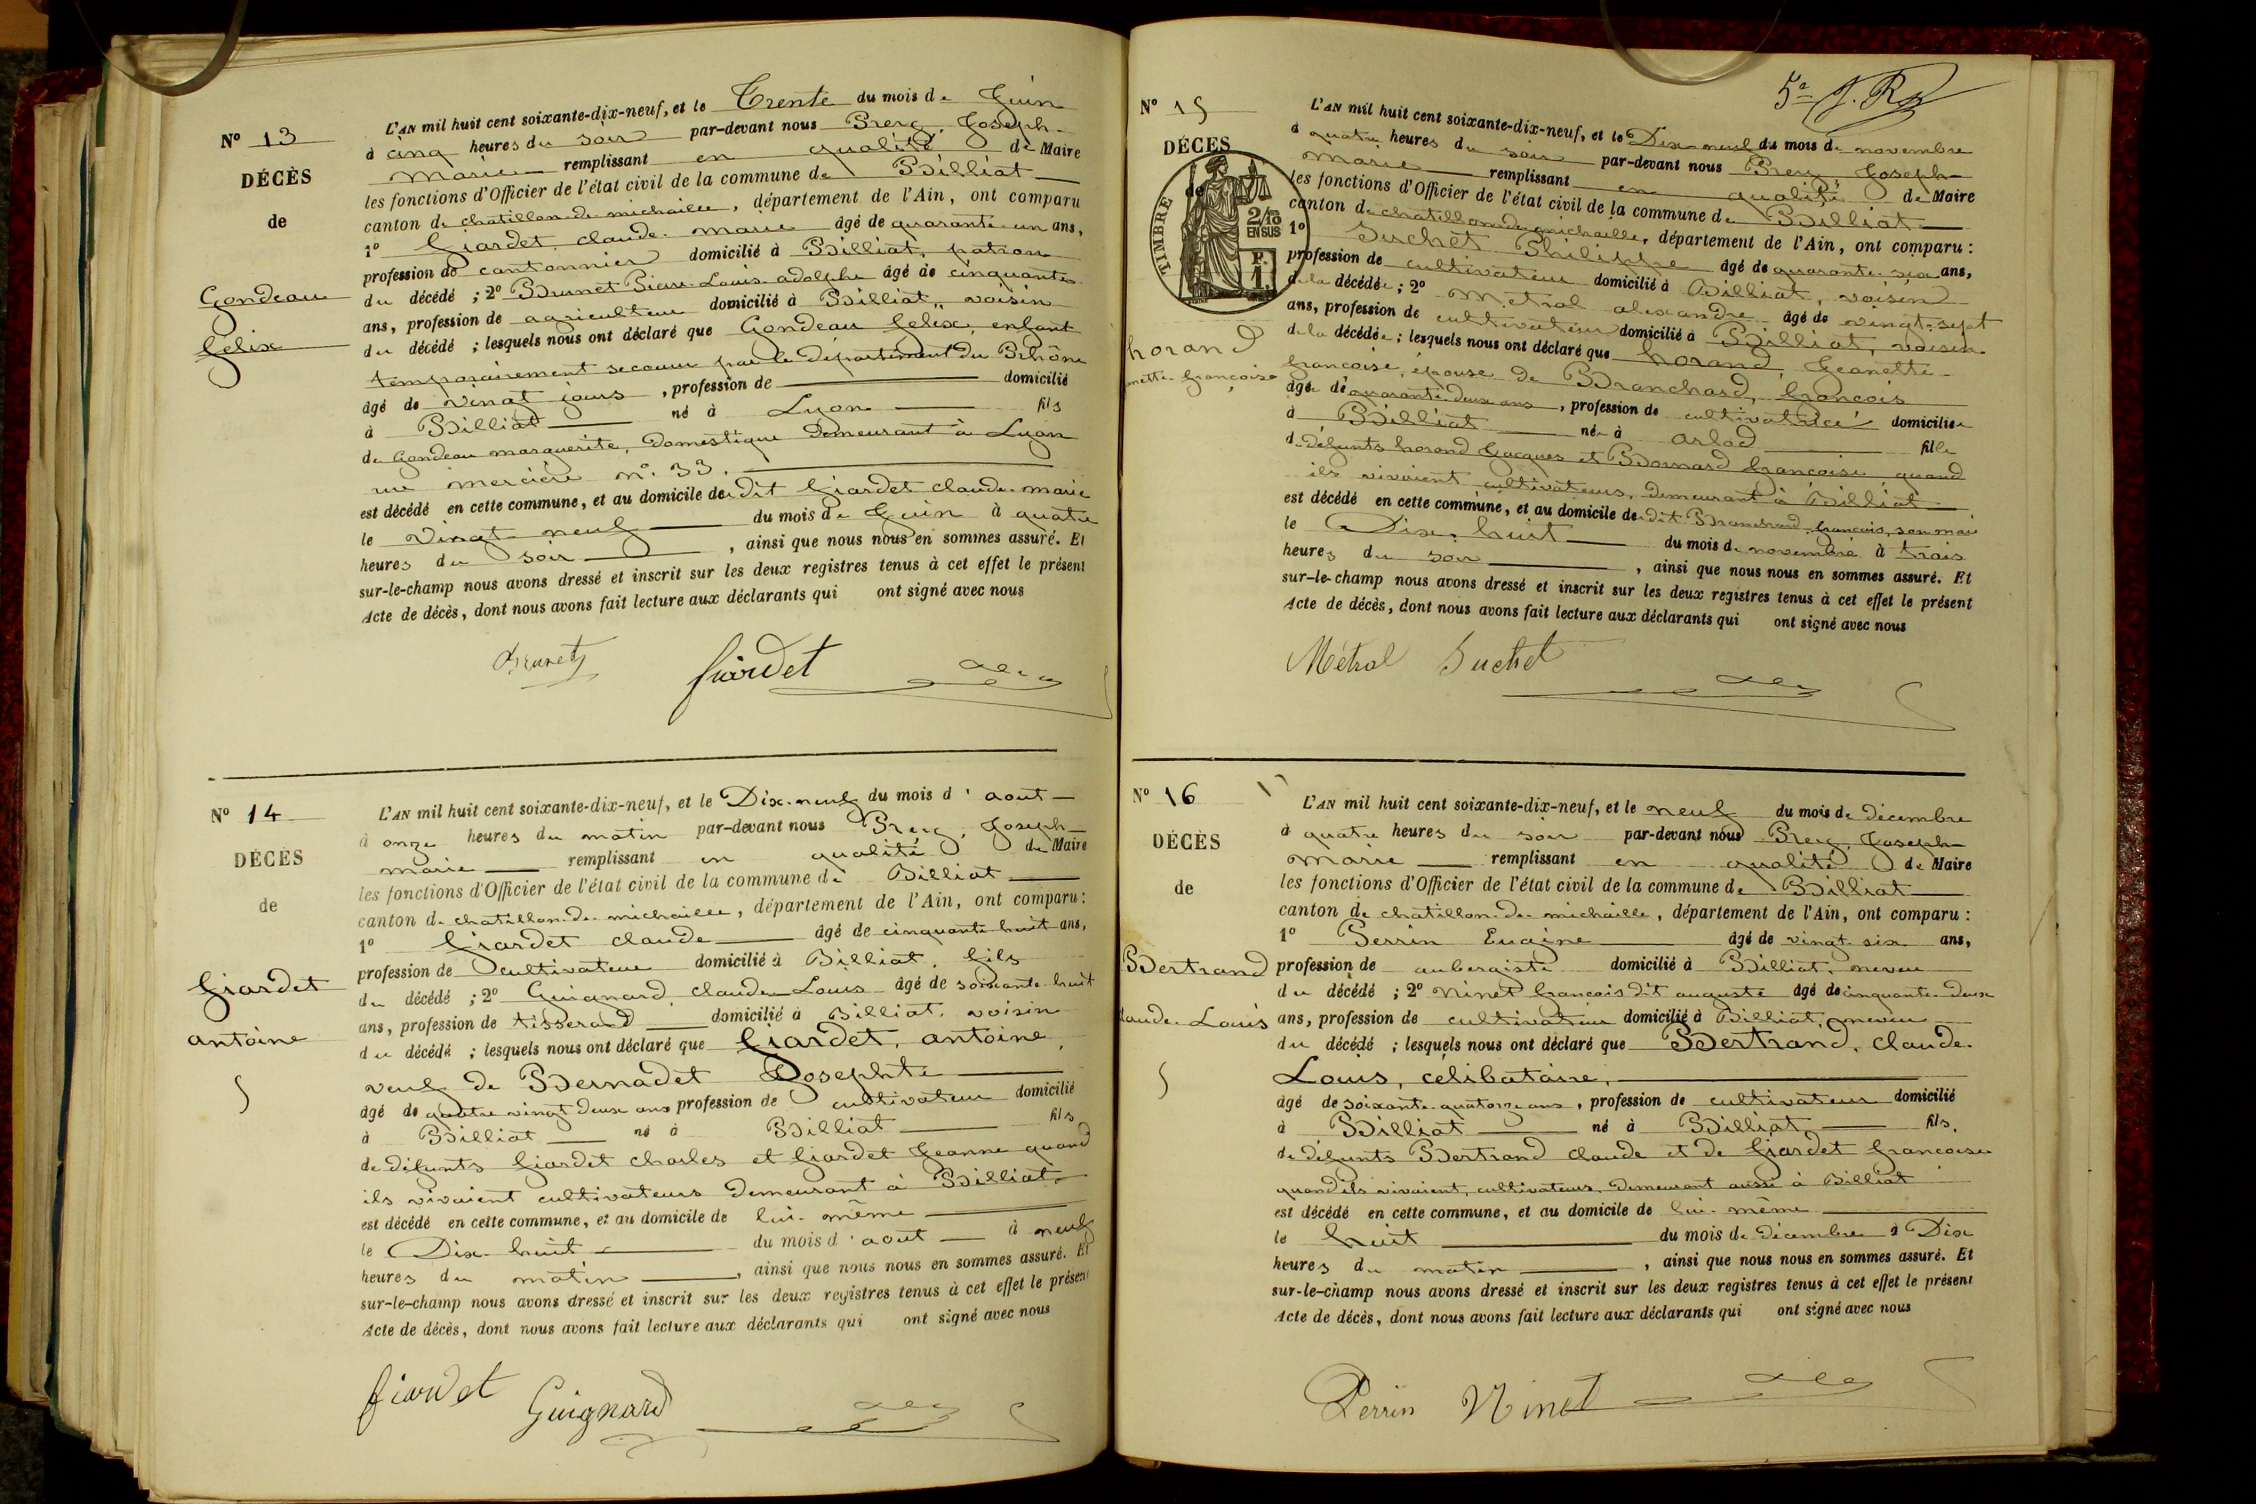 N° 13
DÉCÈS
de
Gondeau
Felix
L'AN mil huit cent soixante-dix-neuf, et le Trente du mois de Juin
à cinq heures du soir par-devant nous Brery, Joseph-
Marie remplissant en qualité de Maire
les fonctions d'Officier de l'état civil de la commune de Billiat
canton de chatillon-de-michaille, département de l'Ain, ont comparu
1° fiardet, claude-marie âgé de quarante-un ans,
profession de cantonnier domicilié à Billiat, patron
du décédé ; 2° Brunet Louis-adolphe âgé de cinquante
ans, profession de agriculteur domicilié à Billiat, voisin
du décédé ; lesquels nous ont déclaré que Gondeau felix, enfant
temporairement secouru par le département du Rhône
âgé de vingt jours, profession de domicilié
à Billiat né à Lyon fils
de Gondeau marguerite, domestique demeurant à Lyon
rue mercière n° 33.
est décédé en cette commune, et au domicile de dit fiardet claude-marie
le vingt-neuf du mois de Juin à quatre
heures du soir, ainsi que nous nous en sommes assuré. Et
sur-le-champ nous avons dressé et inscrit sur les deux registres tenus à cet effet le présent
Acte de décès, dont nous avons fait lecture aux déclarants qui ont signé avec nous
Brunet fiardet
N° 14
DÉCÈS
de
fiardet
antoine
L'AN mil huit cent soixante-dix-neuf, et le Dix-neuf du mois d'aout
à onze heures du matin par-devant nous Brery, Joseph-
marie remplissant en qualité de Maire
les fonctions d'Officier de l'état civil de la commune de Billiat
canton de chatillon-de-michaille, département de l'Ain, ont comparu :
1° fiardet claude âgé de cinquante-huit ans,
profession de cultivateur domicilié à Billiat, fils
du décédé ; 2° Guignard, claude Louis âgé de soixante-huit
ans, profession de tisserand domicilié à Billiat, voisin
du décédé ; lesquels nous ont déclaré que fiardet, antoine,
veuf de Bernadet Josephte
âgé de quatre vingt deux ans profession de cultivateur domicilié
à Billiat né à Billiat fils
de défunts fiardet charles et fiardet Jeanne quand
ils vivaient cultivateurs demeurant à Billiat
est décédé en cette commune, et au domicile de lui-même
le Dix-huit du mois d'aout à neuf
heures du matin, ainsi que nous nous en sommes assuré. Et
sur-le-champ nous avons dressé et inscrit sur les deux registres tenus à cet effet le présent
Acte de décès, dont nous avons fait lecture aux déclarants qui ont signé avec nous
fiardet Guignard
5e
N° 15
DÉCÈS
de
TIMBRE
2/10
EN SUS
P.
1.
horand
nette-françoise
L'AN mil huit cent soixante-dix-neuf, et le Dix-neuf du mois de novembre
à quatre heures du soir par-devant nous Brery, Joseph-
Marie remplissant en qualité de Maire
les fonctions d'Officier de l'état civil de la commune de Billiat
canton de chatillon-de-michaille, département de l'Ain, ont comparu :
1° Suchet Philippe âgé de quarante-six ans,
profession de cultivateur domicilié à Billiat, voisin
de la décédée ; 2° Métral alexandre âgé de vingt-sept
ans, profession de cultivateur domicilié à Billiat, voisin
de la décédée ; lesquels nous ont déclaré que horand, Jeanette-
françoise, épouse de Branchard, françois
âgée de quarante deux ans, profession de cultivatrice domiciliée
à Billiat née à arlod fille
de défunts horand Jacques et Bornard françoise quand
ils vivaient cultivateurs, demeurant à Billiat
est décédé en cette commune, et au domicile de dit Branchard françois, son mari
le Dix-huit du mois de novembre à trois
heures du soir, ainsi que nous nous en sommes assuré. Et
sur-le-champ nous avons dressé et inscrit sur les deux registres tenus à cet effet le présent
Acte de décès, dont nous avons fait lecture aux déclarants qui ont signé avec nous
Métral Suchet
N° 16
DÉCÈS
de
Bertrand
laude-Louis
L'AN mil huit cent soixante-dix-neuf, et le neuf du mois de décembre
à quatre heures du soir par-devant nous Brery, Joseph-
Marie remplissant en qualité de Maire
les fonctions d'Officier de l'état civil de la commune de Billiat
canton de chatillon-de-michaille, département de l'Ain, ont comparu :
1° Perrin Eugine âgé de vingt-six ans,
profession de aubergiste domicilié à Billiat, neveu
du décédé ; 2° Ninet françois dit auguste âgé de cinquante-deux
ans, profession de cultivateur domicilié à Billiat, neveu
du décédé ; lesquels nous ont déclaré que Bertrand, claude-
Louis, célibataire,
âgé de soixante-quatorze ans, profession de cultivateur domicilié
à Billiat né à Billiat fils,
de défunts Bertrand claude et de fiardet françoise
quand ils vivaient, cultivateurs, demeurant aussi à Billiat
est décédé en cette commune, et au domicile de lui-même
le huit du mois de décembre à Dix
heures du matin, ainsi que nous nous en sommes assuré. Et
sur-le-champ nous avons dressé et inscrit sur les deux registres tenus à cet effet le présent
Acte de décès, dont nous avons fait lecture aux déclarants qui ont signé avec nous
Perrin Ninet